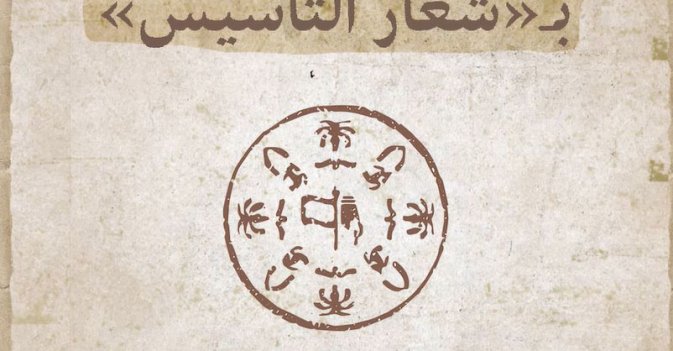 بـ«شعار التأسيس»